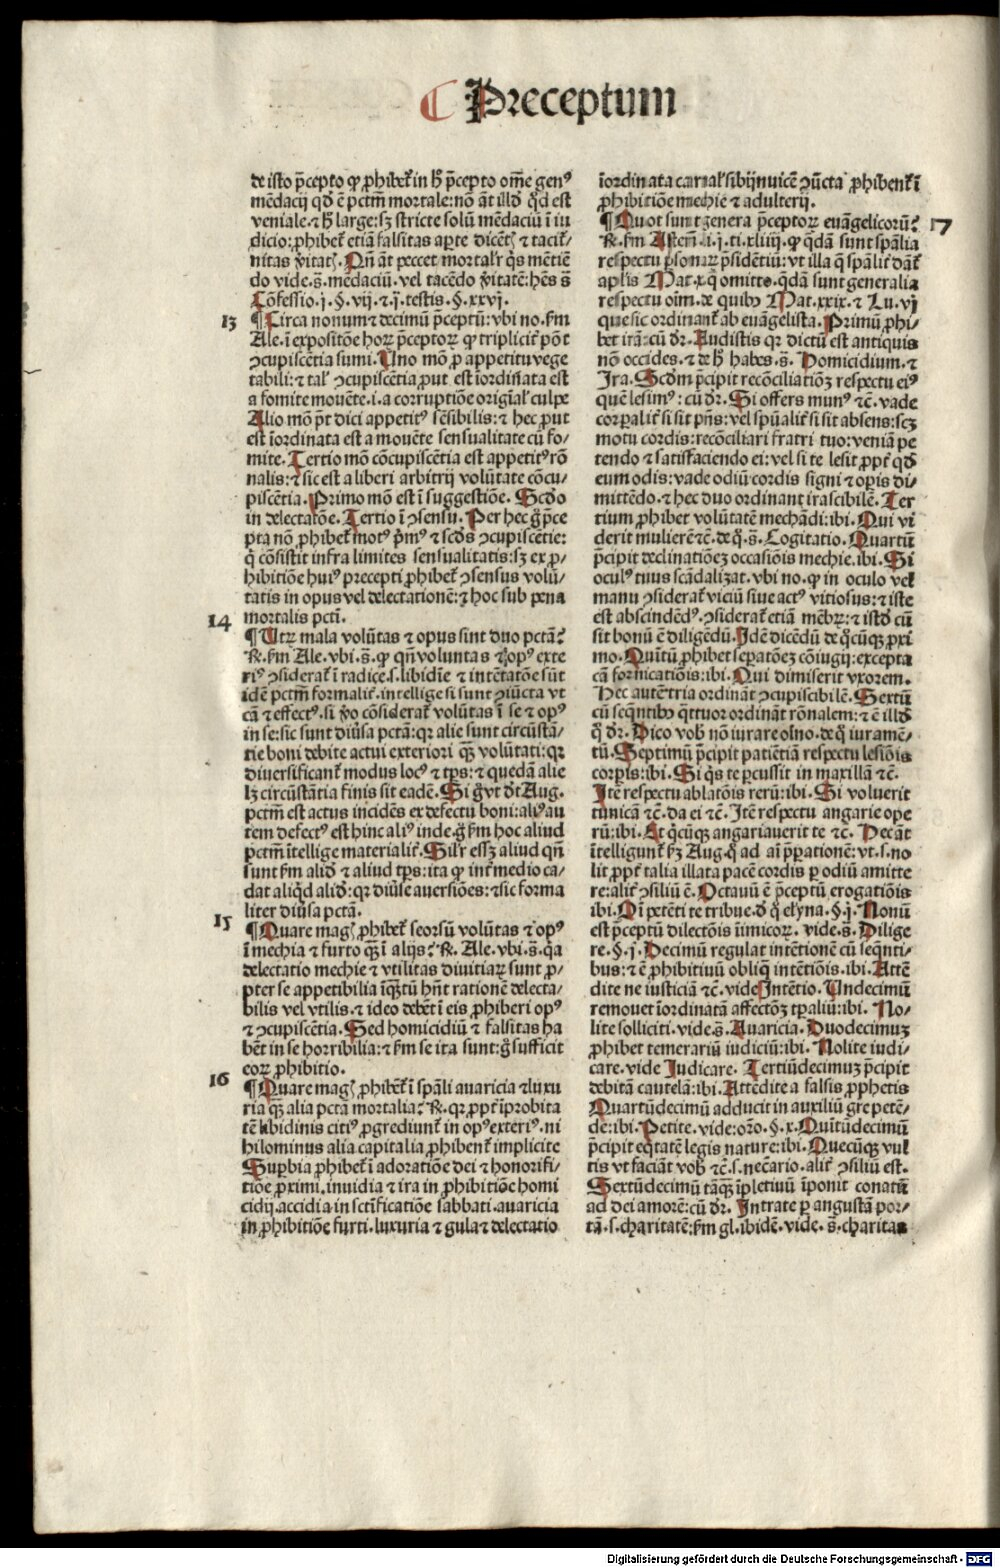 ¶ Preceptum
de isto p̄cepto ꝙ ꝓhibet᷑ in h̄ p̄cepto om̄e genꝰ
mēdacij qd̓ ē pctm̄ mortale: nō āt illd̓ qd̓ est
veniale. ⁊ h̄ large: sꝫ stricte solū mēdaciū ī iu
dicio: ꝓhibet᷑ etiā falsitas aꝑte dicēt᷑ ⁊ tacit᷑/
nitas v̓itat᷑. Qn̄ āt peccet mortalr̓ q̄s mētiē
do vide. s̄. mēdaciū. vel tacēdo v̓itatē: hēs s̄
Cōfessio. j. §. vij. ⁊. j. testis. §. xxvj.
13 ¶ Circa nonum ⁊ decimū p̄ceptū: vbi no. ẜm
Ale. ī expositōe hoꝝ p̄ceptoꝝ ꝙ triplicit᷑ pōt
ꝯcupiscētia sumi. Uno mō ꝓ appetitu vege
tabili: ⁊ tal᷑ ꝯcupiscētia ꝓut est īordinata est
a fomite mouēte. i. a corruptiōe origīal᷑ culpe
Alio mō p̄t dici appetitꝰ sēsibilis: ⁊ hec ꝓut
est īordinata est a mouēte sensualitate cū fo/
mite. Tertio mō cōcupiscētia est appetitꝰ rō
nalis: ⁊ sic est a liberi arbitrij volūtate cōcu/
piscētia. Primo mō est ī suggestiōe. Scd̓o
in delectatōe. Tertio ī ꝯsensu. Per hec ḡ p̄ce
pta nō ꝓhibet᷑ motꝰ p̓mꝰ ⁊ scd̓s ꝯcupiscētie:
q̓ cōsistit infra limites sensualitatis: sꝫ ex ꝓ/
hibitiōe huiꝰ precepti ꝓhibet᷑ ꝯsensus volū/
tatis in opus vel delectationē: ⁊ hoc sub pena
mortalis pctī.
14 ¶ Utꝝ mala volūtas ⁊ opus sint duo pctā?
R̄. ẜm Ale. vbi. s̄. ꝙ qn̄ voluntas ⁊ opꝰ exte
riꝰ ꝯsiderat᷑ ī radice. s. libidīe ⁊ intētatōe sūt
idē pctm̄ formalit᷑. intellige si sunt ꝯiūcta vt
cā ⁊ effectꝰ. si v̓o cōsiderat᷑ volūtas ī se ⁊ opꝰ
in se: sic sunt diūsa pctā: qꝛ alie sunt circūstā/
tie boni debite actui exteriori qꝫ̄ volūtati: qꝛ
diuersificant᷑ modus locꝰ ⁊ tp̄s: ⁊ quedā alie
lꝫ circūstātia finis sit eadē. Si ḡ vt d̓t Aug.
pctm̄ est actus incidēs ex defectu boni: aliꝰ au
tem defectꝰ est hinc aliꝰ inde. ḡ ẜm hoc aliud
pctm̄ ītellige materialit᷑. Silr̓ essꝫ aliud qn̄
sunt ẜm alid̓ ⁊ aliud tp̄s: ita ꝙ int᷑ medio ca/
dat aliqd̓ alid̓: qꝛ diūse auersiōes: ⁊ sic forma
liter diūsa pctā.
15 ¶ Quare mag᷑ ꝓhibet᷑ seorsū volūtas ⁊ opꝰ
ī mechia ⁊ furto qꝫ̄ ī alijs? R̄. Ale. vbi. s̄. q̓a
delectatio mechie ⁊ vtilitas diuitiaꝝ sunt ꝓ/
pter se appetibilia īqꝫ̄tū hn̄t rationē delecta/
bilis vel vtilis. ⁊ ideo debēt ī eis ꝓhiberi opꝰ
⁊ ꝯcupiscētia. Sed homicidiū ⁊ falsitas ha
bēt in se horribilia: ⁊ ẜm se ita sunt: ḡ sufficit
eoꝝ ꝓhibitio.
16 ¶ Quare mag᷑ ꝓhibet᷑ ī sp̄ali auaricia ⁊ luxu
ria qꝫ̄ alia pctā mortalia? R̄. qꝛ ꝓpt᷑ īꝓbita
tē libidinis citiꝰ ꝓgrediunt᷑ in opꝰ exteriꝰ. ni
hilominus alia capitalia ꝓhibent᷑ implicite
Suꝑbia ꝓhibet᷑ ī adoratiōe dei ⁊ honorifi/
tiōe ꝓximi. inuidia ⁊ ira in ꝓhibitiōe homi
cidij. accidia in sctīficatiōe sabbati. auaricia
in ꝓhibitiōe furti. luxuria ⁊ gula ⁊ delectatio
īordinata carnal᷑ sibijnuicē ꝯiūcta ꝓhibent᷑ ī
ꝓhibitiōe mechie ⁊ adulterij.
¶ Quot sunt genera p̄ceptoꝝ euāgelicorū? 17
R̄. ẜm Astern̄. i. j. ti. xliiij. ꝙ qd̓ā sunt sp̄alia
respectu ꝑsonaꝝ p̄sidētiū: vt illa q̄ sp̄alit᷑ dāt᷑
aplis Mat. x. q̄ omitto. qd̓ā sunt generalia
respectu oīm. de quibꝰ Mat. xxix. ⁊ Lu. vj
que sic ordinant᷑ ab euāgelista. Primū ꝓhi/
bet irā: cū dr̓. Audistis qꝛ dictū est antiquis
nō occides. ⁊ de h̄ habes. s̄. Homicidium. ⁊
Ira. Scd̓m p̄cipit recōciliatiōꝫ respectu eiꝰ
quē lesimꝰ: cū dr̓. Si offers munꝰ ⁊c̄. vade
corꝑalit᷑ si sit pn̄s: vel sp̄ualit᷑ si sit absens: scꝫ
motu cordis: recōciliari fratri tuo: veniā pe
tendo ⁊ satisfaciendo ei: vel si te lesit ꝓpt᷑ qd̓
eum odis: vade odiū cordis signi ⁊ oꝑis di/
mittēdo. ⁊ hec duo ordinant irascibilē. Ter
tium ꝓhibet volūtatē mechādi: ibi. Qui vi
derit mulierē ⁊c̄. de q̓. s̄. Cogitatio. Quartū
p̄cipit declinatiōeꝫ occasiōis mechie. ibi. Si
oculꝰ tuus scādalizat. vbi no. ꝙ in oculo vel
manu ꝯsiderat᷑ viciū siue actꝰ vitiosus: ⁊ iste
est abscindēdꝰ. ꝯsiderat᷑ etiā mēbꝝ: ⁊ istd̓ cū
sit bonū ē diligēdū. Idē dicēdū de q̓cūqꝫ ꝓxi
mo. Quītū ꝓhibet seꝑatōeꝫ cōiugij: excepta
cā fornicatiōis: ibi. Qui dimiserit vxorem.
Hec autē tria ordināt ꝯcupiscibilē. Sextū
cū seqn̄tibꝰ q̓ttuor ordināt rōnalem: ⁊ ē illd̓
q̓ dr̓. Dico vob᷑ nō iurare oīno. de q̓ iuramē/
tū. Septimū p̄cipit patiētiā respectu lesiōis
corꝑis: ibi. Si q̄s te ꝑcussit in maxillā ⁊c̄.
Itē respectu ablatōis rerū: ibi. Si voluerit
tunicā ⁊c̄. da ei ⁊c̄. Itē respectu angarie ope
rū: ibi. Et q̓cūqꝫ angariauerit te ⁊c. Hec āt
ītelligunt᷑ ẜꝫ Aug. q̓ ad aī p̄ꝑationē: vt. s. no
lit ꝓpt᷑ talia illata pacē cordis ꝑ odiū amitte
re: alit᷑ ꝯsiliū ē. Octauū ē p̄ceptū erogatiōis
ibi. Oī petēti te tribue. d̓ q̓ elꝫyna. §. j. Nonū
est p̄ceptū dilectōis īimicoꝝ. vide. s̄. Dilige
re. §. j. Decimū regulat intētionē cū seqn̄ti/
bus: ⁊ ē ꝓhibitiuū obliq̄ intētiōis. ibi. Attē
dite ne iusticiā ⁊c̄. vide Intētio. Undecimū
remouet īordinatā affectōꝫ tꝑaliū: ibi. No/
lite solliciti. vide. s̄. Auaricia. Duodecimuꝫ
ꝓhibet temerariū iudiciū: ibi. Nolite iudi/
care. vide Iudicare. Tertiūdecimuꝫ p̄cipit
debitā cautelā: ibi. Attēdite a falsis ꝓphetis
Quartūdecimū adducit in auxiliū gre petē/
de: ibi. Petite. vide: or̄o. §. x. Quītūdecimū
p̄cipit eq̓tatē legis nature: ibi. Quecūqꝫ vul
tis vt faciāt vob᷑ ⁊c̄. s. nec̄ario. alit᷑ ꝯsiliū est.
Sextūdecimū tāqꝫ̄ īpletiuū īponit conatū
ad dei amorē: cū dr̓. Intrate ꝑ angustā por/
tā. s. charitatē: ẜm gl. ibidē. vide. s̄. charitas
Digitalisierung gefördert durch die Deutsche Forschungsgemeinschaft - DFG